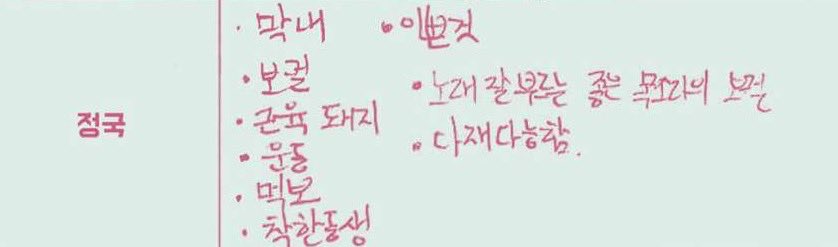 정국
· 막내
· 보컬
· 근육 돼지
· 운동
· 먹보
· 착한동생
· 이쁜것
· 노래 잘부르는 좋은 목소리의 보컬
· 다재다능함.